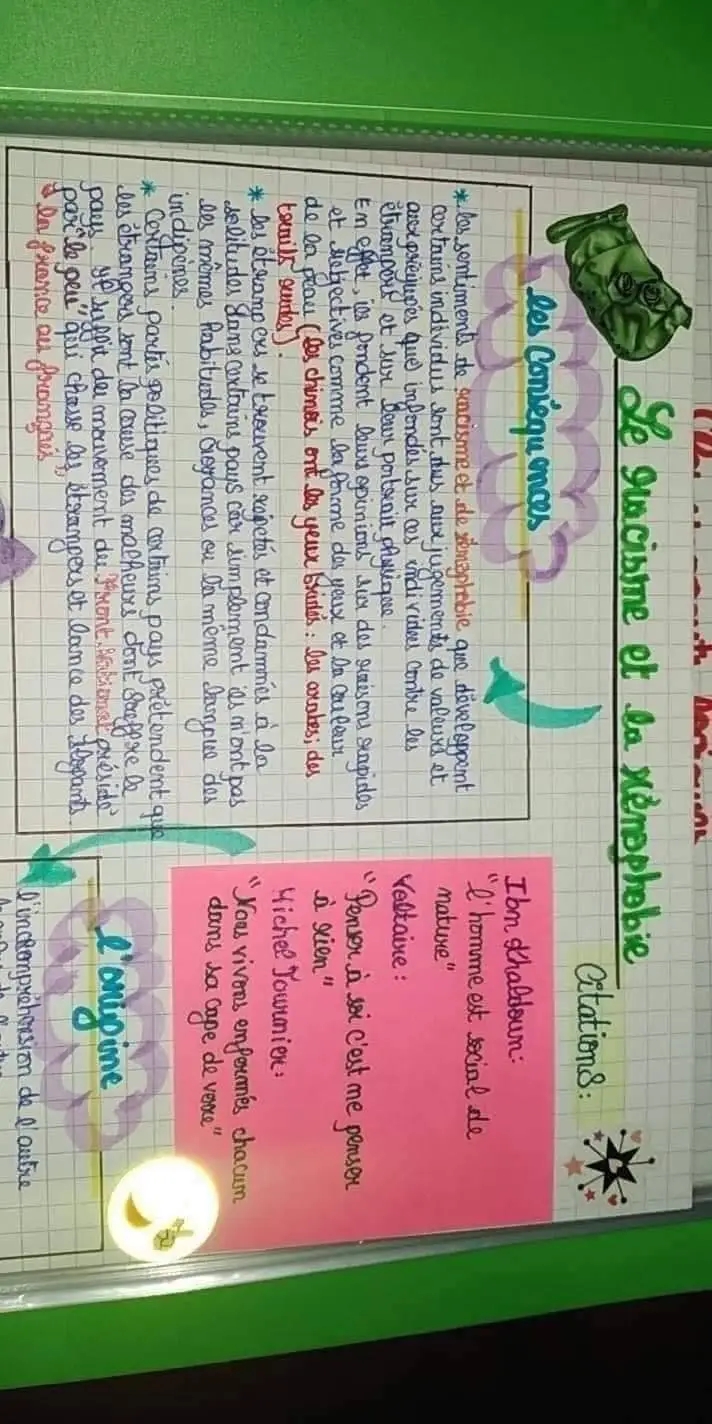 Le racisme et la xénophobie
les Conséquences
* les sentiments de racisme et de xénophobie que développent
certains individus sont dus aux jugements de valeurs et
aux préjugés que infondés sur ces individus contre les
étrangers et sur leur portrait physique.
En effet, ils fondent leurs opinions sur des raisons rapides
et subjective comme la forme des yeux et la couleur
de la peau (les chinois ont les yeux bridés : les arabes ; des
* les étrangers se trouvent rejetés et condamnés à la
solitudes dans certains pays car simplement ils n'ont pas
les mêmes habitudes, croyances ou la même langue des
indigènes.
* Certains partis politiques de certains pays prétendent que
les étrangers sont la cause des malheurs dont souffre le
pays. il suffit du mouvement du "Front National" présidé
par "le pen" qui chasse les étrangers et lance des slogants.
"la france aux français"
citations :
Ibn Khaldoun :
"l'homme est social de
nature"
Voltaire :
"Penser à soi c'est ne penser
à rien"
Michel Tournier :
"Nous vivons enfermés chacun
dans sa cage de verre"
l'origine
l'incompréhension de l'autre